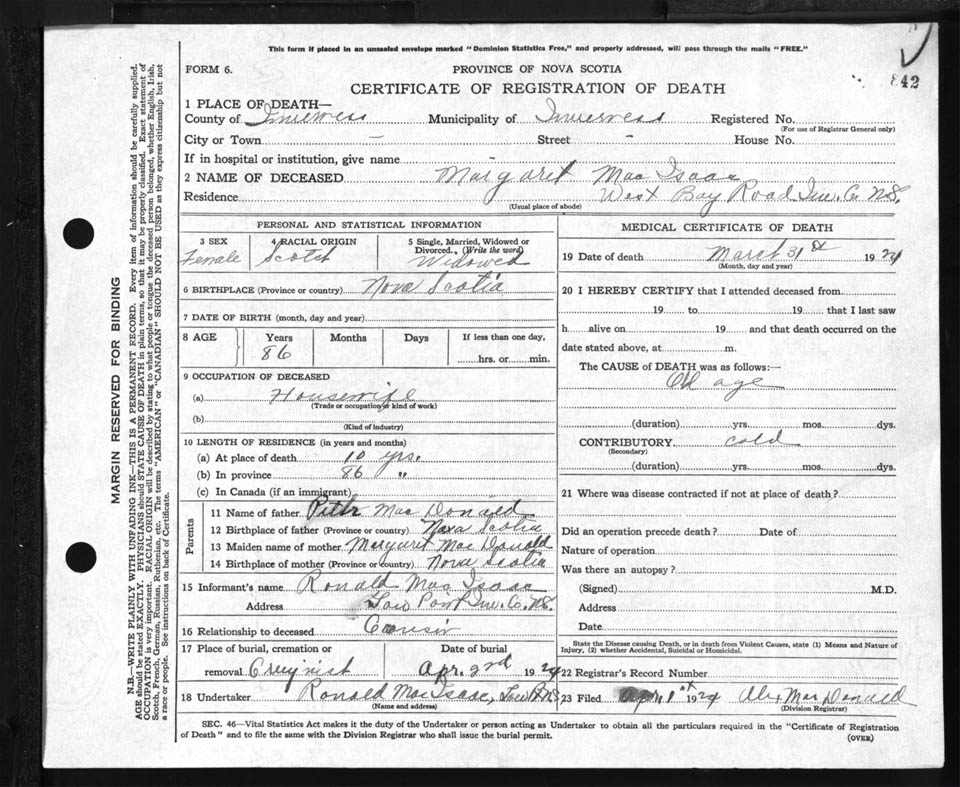 This form if placed in an unsealed envelope marked "Dominion Statistics Free," and properly addressed, will pass through the mails "FREE."
FORM 6.
PROVINCE OF NOVA SCOTIA
842
CERTIFICATE OF REGISTRATION OF DEATH
1 PLACE OF DEATH—
County of Inverness Municipality of Inverness Registered No.
(For use of Registrar General only)
City or Town – Street – House No.
If in hospital or institution, give name –
2 NAME OF DECEASED Margaret Mac Isaac
Residence West Bay Road Inv. C. N.S.
(Usual place of abode)
PERSONAL AND STATISTICAL INFORMATION
3 SEX 4 RACIAL ORIGIN 5 Single, Married, Widowed or Divorced. (Write the word)
Female Scotch Widowed
6 BIRTHPLACE (Province or country) Nova Scotia
7 DATE OF BIRTH (month, day and year)
8 AGE Years Months Days If less than one day,
86 hrs. or min.
9 OCCUPATION OF DECEASED
(a) Housewife
(Trade or occupation or kind of work)
(b)
(Kind of industry)
10 LENGTH OF RESIDENCE (in years and months)
(a) At place of death 10 yrs.
(b) In province 86 "
(c) In Canada (if an immigrant)
Parents
11 Name of father Peter Mac Donald
12 Birthplace of father (Province or country) Nova Scotia
13 Maiden name of mother Margaret Mac Donald
14 Birthplace of mother (Province or country) Nova Scotia
15 Informant's name Ronald Mac Isaac
Address Low Point Inv. C. N.S.
16 Relationship to deceased Cousin
17 Place of burial, cremation or Date of burial
removal Creignish Apr. 2nd 1924
18 Undertaker Ronald MacIsaac, Low Pt. N.S.
(Name and address)
MEDICAL CERTIFICATE OF DEATH
19 Date of death March 31st 1924
(Month, day and year)
20 I HEREBY CERTIFY that I attended deceased from
19 to 19 that I last saw
h alive on 19 and that death occurred on the
date stated above, at m.
The CAUSE of DEATH was as follows:—
Old age
(duration) yrs. mos. dys.
CONTRIBUTORY cold
(Secondary)
(duration) yrs. mos. dys.
21 Where was disease contracted if not at place of death?
Did an operation precede death? Date of
Nature of operation
Was there an autopsy?
(Signed) M.D.
Address
Date
State the Disease causing Death, or in death from Violent Causes, state (1) Means and Nature of Injury, (2) whether Accidental, Suicidal or Homicidal.
22 Registrar's Record Number
23 Filed Apr. 1st 1924 Alex Mac Donald
(Division Registrar)
SEC. 46—Vital Statistics Act makes it the duty of the Undertaker or person acting as Undertaker to obtain all the particulars required in the "Certificate of Registration
of Death" and to file the same with the Division Registrar who shall issue the burial permit.
(OVER)
MARGIN RESERVED FOR BINDING
N.B.—WRITE PLAINLY WITH UNFADING INK—THIS IS A PERMANENT RECORD. Every item of information should be carefully supplied.
AGE should be stated EXACTLY. PHYSICIANS should STATE CAUSE OF DEATH in plain terms, so that it may be properly classified. Exact statement of
OCCUPATION is very important. RACIAL ORIGIN will be described by stating to what people or tongue the deceased person belonged, whether English, Irish,
Scotch, French, German, Russian, Ruthenian, etc. The terms "AMERICAN" or "CANADIAN" SHOULD NOT BE USED as they express citizenship but not
a race or people. See instructions on back of Certificate.